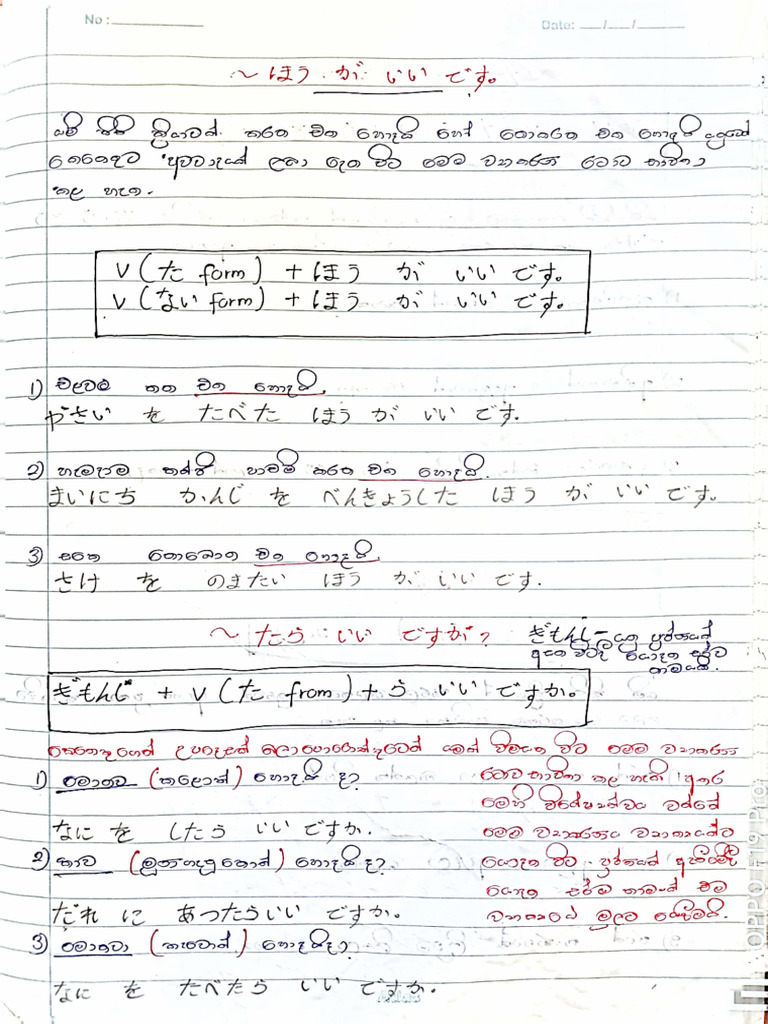 No :
Date: __/__/__
~ ほう が いい です。
යම් කිසි ක්‍රියාවක් කරන එක හොඳයි හෝ නොකරන එක හොඳයි
කෙනෙකුට අවවාදයක් ලබා දෙන විට මෙම ව්‍යාකරණ රටාව භාවිතා
කළ හැක.
V (た form) + ほう が いい です。
V (ない form) + ほう が いい です。
1) එළවළු කන එක හොඳයි.
やさい を たべた ほう が いい です.
2) හැමදාම කන්ජි පාඩම් කරන එක හොඳයි.
まいにち かんじ を べんきょうした ほう が いい です。
3) සකෙ නොබොන එක හොඳයි.
さけ を のまない ほう が いい です.
~ たら いい ですが?
ぎもんし - යනු ප්‍රශ්නයක්
අසන විටදී යොදන සර්ව
නාමයයි.
ぎもんし + V (た from) + ら いい ですか。
උපදෙසක් බලාපොරොත්තුවෙන් යමක් විමසන විට මෙම ව්‍යාකරණ
1) මොනව (කළොත්) හොඳයි ද?
රටාව භාවිතා කළ හැකි අතර
මෙහි විශේෂත්වය වන්නේ
なに を したら いい ですか.
මෙම ව්‍යාකරණය වාක්‍යයකට
2) කාව (මුණගැහුනොත්) හොඳයි ද?
යොදන විට ප්‍රශ්නයක් ඇසීමේදී
යොදන සර්ව නාමයක් එම
だれ に あったらいい ですか。
වාක්‍යයේ මුලට යෙදීමයි.
3) මොනවා (කෑවොත්) හොඳයිද?
なに を たべたら いい ですか.
OPPO F19 Pro